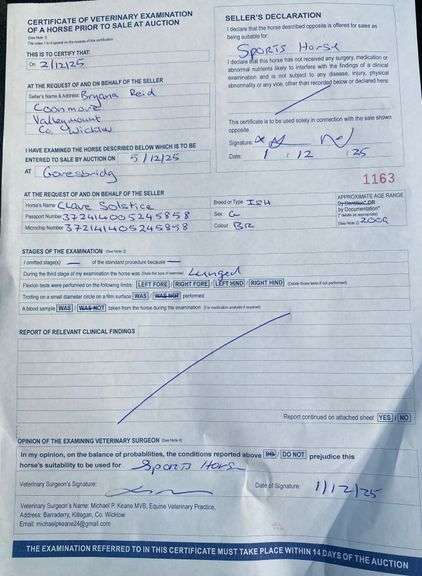 CERTIFICATE OF VETERINARY EXAMINATION
OF A HORSE PRIOR TO SALE AT AUCTION
(See Note 1)
THIS IS TO CERTIFY THAT
On 2/12/25
AT THE REQUEST OF AND ON BEHALF OF THE SELLER
Seller's Name & Address: Bryana Reid
Coonmore
Valleymount
Co. Wicklow
I HAVE EXAMINED THE HORSE DESCRIBED BELOW WHICH IS TO BE
ENTERED TO SALE BY AUCTION ON 5/12/25
AT Goresbridg
SELLER'S DECLARATION
I declare that the horse described opposite is offered for sales as
being suitable for:
Sports Horse
I declare that this horse has not received any surgery, medication or
abnormal nutrients likely to interfere with the findings of a clinical
examination and is not subject to any disease, injury, physical
abnormality or any vice, other than recorded below or declared here:
This certificate is to be used solely in connection with the sale shown
opposite
Signature:
Date: 1 / 12 / 25
1163
AT THE REQUEST OF AND ON BEHALF OF THE SELLER
Horse's Name Clave Solstice
Passport Number 372414005245858
Microchip Number 372141405245858
Breed or Type ISH
Sex G
Colour Br
APPROXIMATE AGE RANGE
By Dentition OR
by Documentation*
(* delete as appropriate)
(See Note 2)
STAGES OF THE EXAMINATION (See Note 3)
I omitted stage(s) — of the standard procedure because —
During the third stage of my examination the horse was (State the type of exercise) Lunged
Flexion tests were performed on the following limbs: LEFT FORE / RIGHT FORE / LEFT HIND / RIGHT HIND (Delete those tests if not performed)
Trotting on a small diameter circle on a firm surface WAS / WAS NOT performed
A blood sample WAS / WAS NOT taken from the horse during the examination (For medication analysis if required)
REPORT OF RELEVANT CLINICAL FINDINGS
Report continued on attached sheet YES / NO
OPINION OF THE EXAMINING VETERINARY SURGEON (See Note 4)
In my opinion, on the balance of probabilities, the conditions reported above DO / DO NOT prejudice this
horse's suitability to be used for Sports Horse
Veterinary Surgeon's Signature:
Date of Signature: 1/12/25
Veterinary Surgeon's Name: Michael P. Keane MVB, Equine Veterinary Practice,
Address: Barraderry, Killagan, Co. Wicklow
Email: michaelpkeane24@gmail.com
THE EXAMINATION REFERRED TO IN THIS CERTIFICATE MUST TAKE PLACE WITHIN 14 DAYS OF THE AUCTION